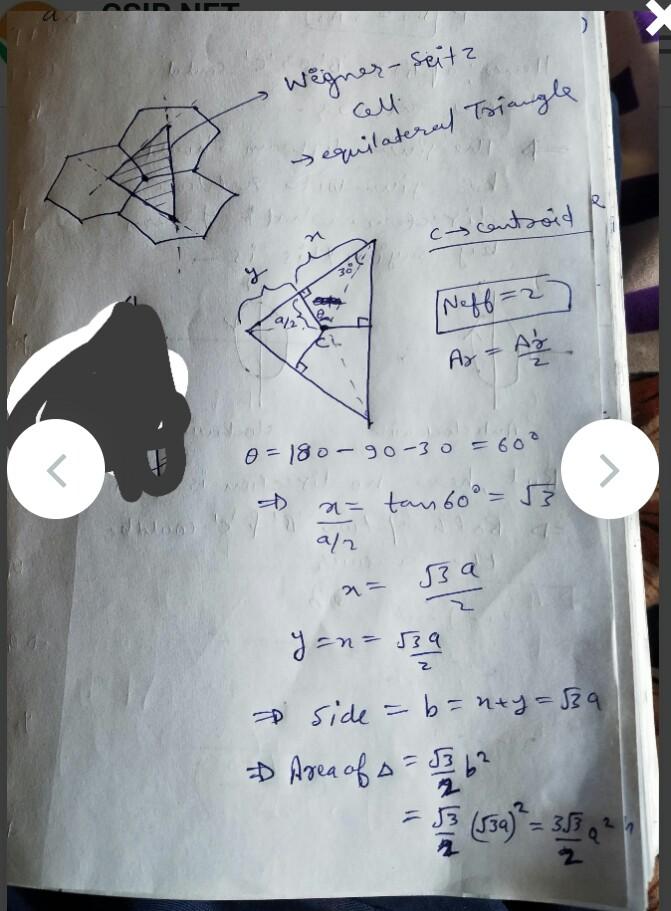 Wegner-Seitz
Cell
→ equilateral Triangle
C → centroid
x
y
30°
a/2
θ
C
Neff = 2
Ar = A'r/2
θ = 180 - 90 - 30 = 60°
⇒ x/(a/2) = tan60° = √3
x = √3 a/2
y = x = √3 a/2
⇒ Side = b = x+y = √3a
⇒ Area of Δ = √3/2 b²
= √3/2 (√3a)² = 3√3/2 a²